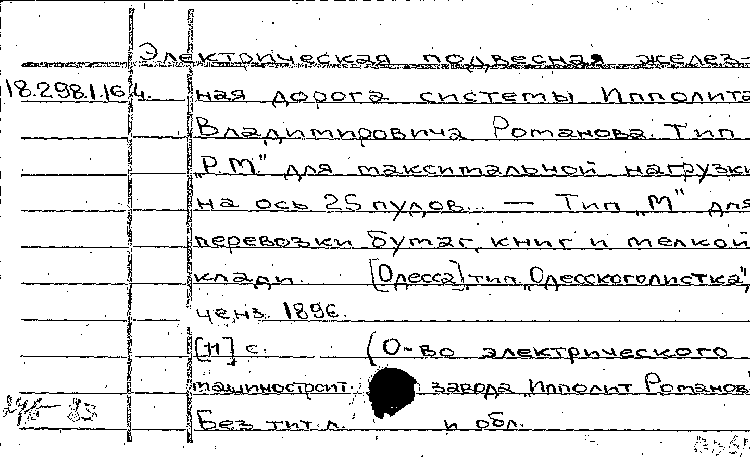 Электрическая подвесная желез-
18.298.1.164. ная дорога системы Ипполита
Владимировича Романова. Тип
„Р.М." для максимальной нагрузки
на ось 25 пудов... — Тип „М" для
перевозки бумаг, книг и мелкой
клади. [Одесса], тип. „Одесского листка",
ценз. 1896.
[11] с. (О-во электрического
машиностроит. завода „Ипполит Романов"
Без тит. л. и обл.